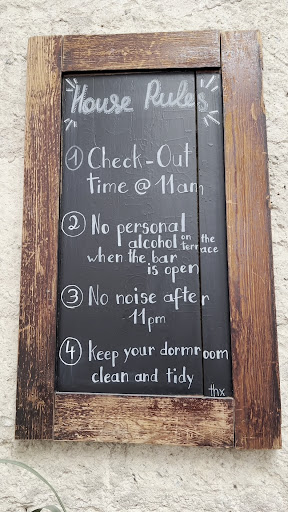 House Rules
1 Check-Out
time @ 11am
2 No personal
alcohol on the terrace
when the bar
is open
3 No noise after
11pm
4 Keep your dormroom
clean and tidy
thx